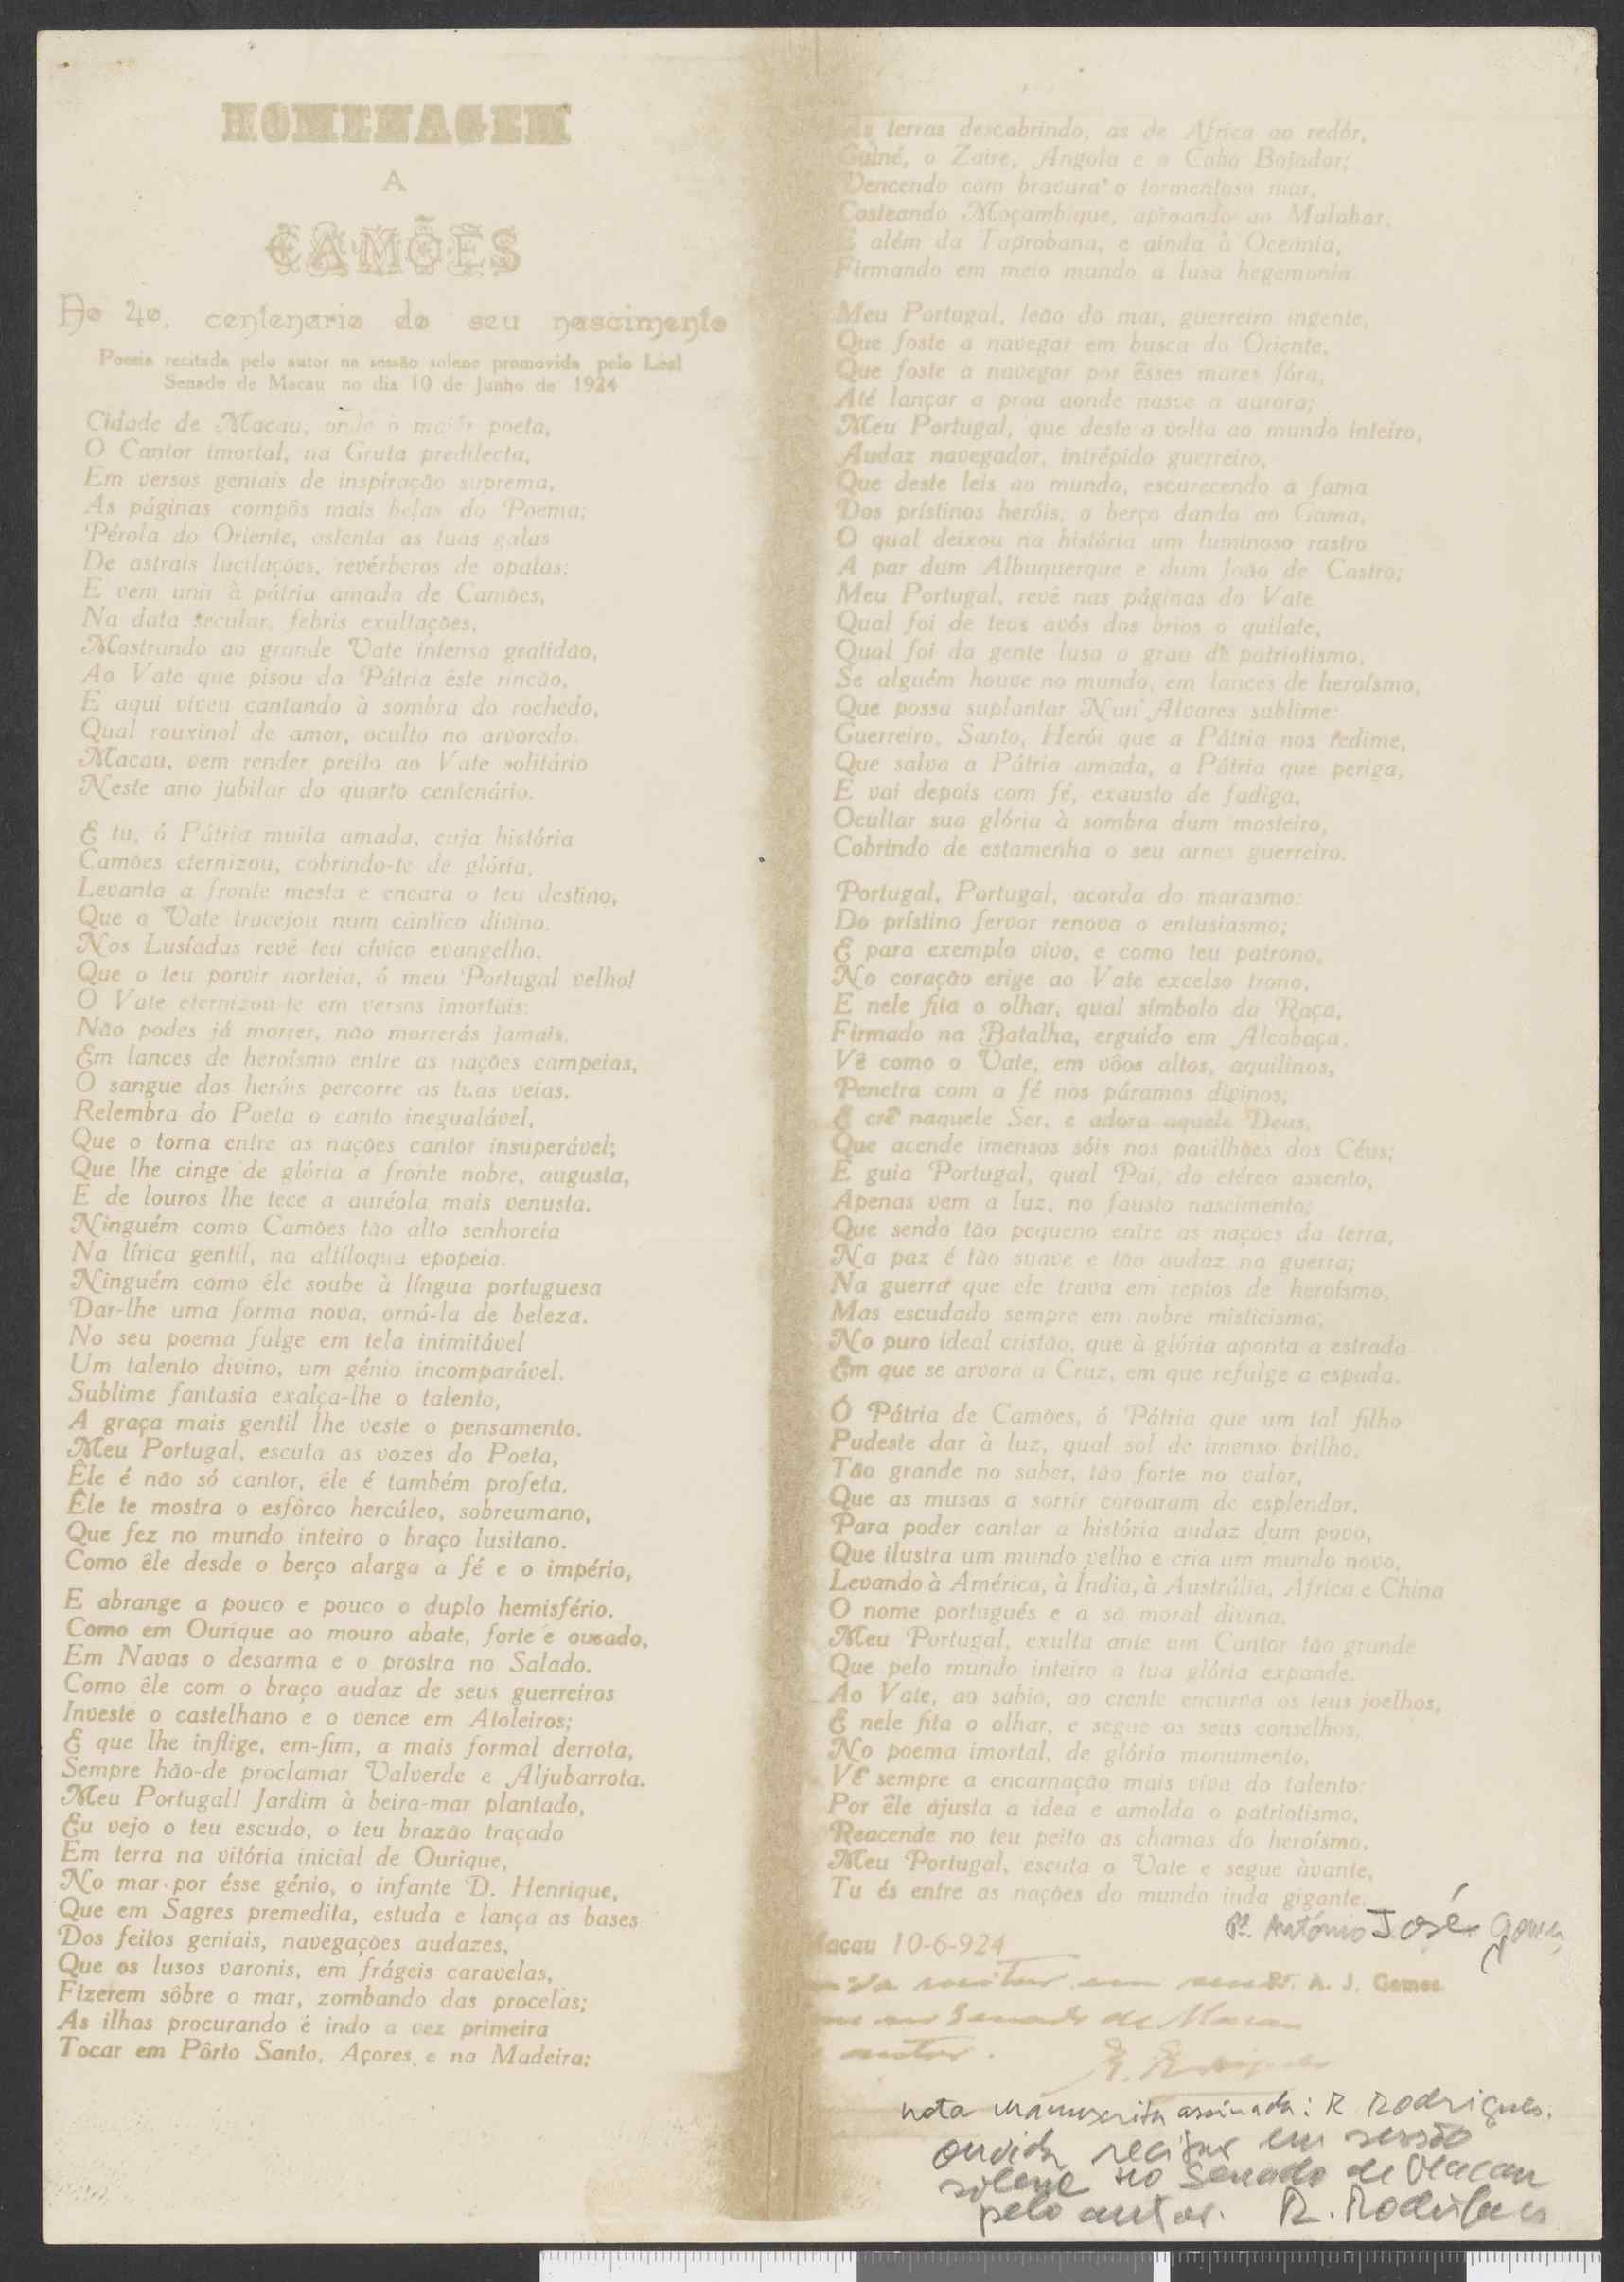 HOMENAGEM
A
CAMÕES
Ao 4o. centenario do seu nascimento
Poesia recitada pelo autor na sessão solene promovida pelo Leal
Senado de Macau no dia 10 de Junho de 1924
Cidade de Macau, onde o maior poeta,
O Cantor imortal, na Gruta predilecta,
Em versos geniais de inspiração suprema,
As páginas compôs mais belas do Poema;
Pérola do Oriente, ostenta as tuas galas
De astrais lucilações, revérberos de opalas;
E vem unir à pátria amada de Camões,
Na data secular, febris exultações,
Mostrando ao grande Vate intensa gratidão,
Ao Vate que pisou da Pátria êste rincão,
E aqui viveu cantando à sombra do rochedo,
Qual rouxinol de amor, oculto no arvoredo.
Macau, vem render preito ao Vate solitário
Neste ano jubilar do quarto centenário.
E tu, ó Pátria muita amada, cuja história
Camões eternizou, cobrindo-te de glória,
Levanta a fronte mesta e encara o teu destino,
Que o Vate tracejou num cântico divino.
Nos Lusíadas revê teu cívico evangelho,
Que o teu porvir norteia, ó meu Portugal velho!
O Vate eternizou-te em versos imortais;
Não podes já morrer, não morrerás jamais.
Em lances de heroísmo entre as nações campeias,
O sangue dos heróis percorre as tuas veias.
Relembra do Poeta o canto inegualável,
Que o torna entre as nações cantor insuperável;
Que lhe cinge de glória a fronte nobre, augusta,
E de louros lhe tece a auréola mais venusta.
Ninguém como Camões tão alto senhoreia
Na lírica gentil, na altíloqua epopeia.
Ninguém como êle soube à língua portuguesa
Dar-lhe uma forma nova, orná-la de beleza.
No seu poema fulge em tela inimitável
Um talento divino, um génio incomparável.
Sublime fantasia exalça-lhe o talento,
A graça mais gentil lhe veste o pensamento.
Meu Portugal, escuta as vozes do Poeta,
Êle é não só cantor, êle é também profeta.
Êle te mostra o esfôrco hercúleo, sobreumano,
Que fez no mundo inteiro o braço lusitano.
Como êle desde o berço alarga a fé e o império,
E abrange a pouco e pouco o duplo hemisfério.
Como em Ourique ao mouro abate, forte e ousado,
Em Navas o desarma e o prostra no Salado.
Como êle com o braço audaz de seus guerreiros
Investe o castelhano e o vence em Atoleiros;
E que lhe inflige, em-fim, a mais formal derrota,
Sempre hão-de proclamar Valverde e Aljubarrota.
Meu Portugal! Jardim à beira-mar plantado,
Eu vejo o teu escudo, o teu brazão traçado
Em terra na vitória inicial de Ourique,
No mar por ésse génio, o infante D. Henrique,
Que em Sagres premedita, estuda e lança as bases
Dos feitos geniais, navegações audazes,
Que os lusos varonis, em frágeis caravelas,
Fizerem sôbre o mar, zombando das procelas;
As ilhas procurando e indo a vez primeira
Tocar em Pôrto Santo, Açores e na Madeira;
As terras descobrindo, as de Africa ao redór,
Guiné, o Zaire, Angola e o Cabo Bojador;
Vencendo com bravura o tormentoso mar,
Costeando Moçambique, aproando ao Malabar,
E além da Taprobana, e ainda à Oceania,
Firmando em meio mundo a lusa hegemonia.
Meu Portugal, leão do mar, guerreiro ingente,
Que foste a navegar em busca do Oriente,
Que foste a navegar por êsses mares fóra,
Até lançar a proa aonde nasce a aurora;
Meu Portugal, que deste a volta ao mundo inteiro,
Audaz navegador, intrépido guerreiro,
Que deste leis ao mundo, escurecendo a fama
Dos prístinos heróis, o berço dando ao Gama,
O qual deixou na história um luminoso rastro
A par dum Albuquerque e dum João de Castro;
Meu Portugal, revê nas páginas do Vate
Qual foi de teus avós dos brios o quilate,
Qual foi da gente lusa o grau de patriotismo,
Se alguém houve no mundo, em lances de heroísmo,
Que possa suplantar Nun' Alvares sublime:
Guerreiro, Santo, Herói que a Pátria nos redime,
Que salva a Pátria amada, a Pátria que periga,
E vai depois com fé, exausto de fadiga,
Ocultar sua glória à sombra dum mosteiro,
Cobrindo de estamenha o seu arnes guerreiro.
Portugal, Portugal, acorda do marasmo;
Do prístino fervor renova o entusiasmo;
E para exemplo vivo, e como teu patrono,
No coração erige ao Vate excelso trono,
E nele fita o olhar, qual símbolo da Raça,
Firmado na Batalha, erguido em Alcobaça.
Vê como o Vate, em vôos altos, aquilinos,
Penetra com a fé nos páramos divinos,
E crê naquele Ser, e adora aquele Deus,
Que acende imensos sóis nos pavilhões dos Céus;
E guia Portugal, qual Pai, do etéreo assento,
Apenas vem a luz, no fausto nascimento;
Que sendo tão pequeno entre as nações da terra,
Na paz é tão suave e tão audaz na guerra;
Na guerra que ele trava em reptos de heroísmo,
Mas escudado sempre em nobre misticismo,
No puro ideal cristão, que à glória aponta a estrada
Em que se arvora a Cruz, em que refulge a espada.
Ó Pátria de Camões, ó Pátria que um tal filho
Pudeste dar à luz, qual sol de imenso brilho,
Tão grande no saber, tão forte no valor,
Que as musas a sorrir coroaram de esplendor,
Para poder cantar a história audaz dum povo,
Que ilustra um mundo velho e cria um mundo novo,
Levando à América, à Índia, à Austrália, Africa e China
O nome portugués e a sã moral divina.
Meu Portugal, exulta ante um Cantor tão grande
Que pelo mundo inteiro a tua glória expande.
Ao Vate, ao sabio, ao crente encurva os teus joelhos,
E nele fita o olhar, e segue os seus conselhos.
No poema imortal, de glória monumento,
Vê sempre a encarnação mais viva do talento:
Por êle ajusta a idea e amolda o patriotismo,
Reacende no teu peito as chamas do heroísmo.
Meu Portugal, escuta o Vate e segue àvante,
Tu és entre as nações do mundo inda gigante.
Pe. António José Gomes
Macau 10-6-924
P. A. J. Gomes
no Senado de Macau
autor.
R. Rodrigues
nota manuscrita assinada: R Rodrigues.
ouvida recitar em sessão
solene no Senado de Macau
pelo autor. R. Rodrigues